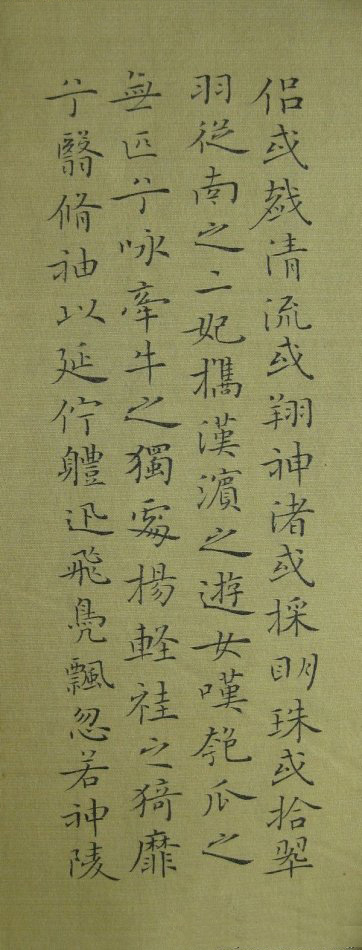 侣或戲清流或翔神渚或採明珠或拾翠
羽從南之二妃攜漢濱之遊女嘆匏瓜之
無匹兮咏牽牛之獨處揚軽袿之猗靡
兮翳脩袖以延佇軆迅飛鳧飄忽若神陵